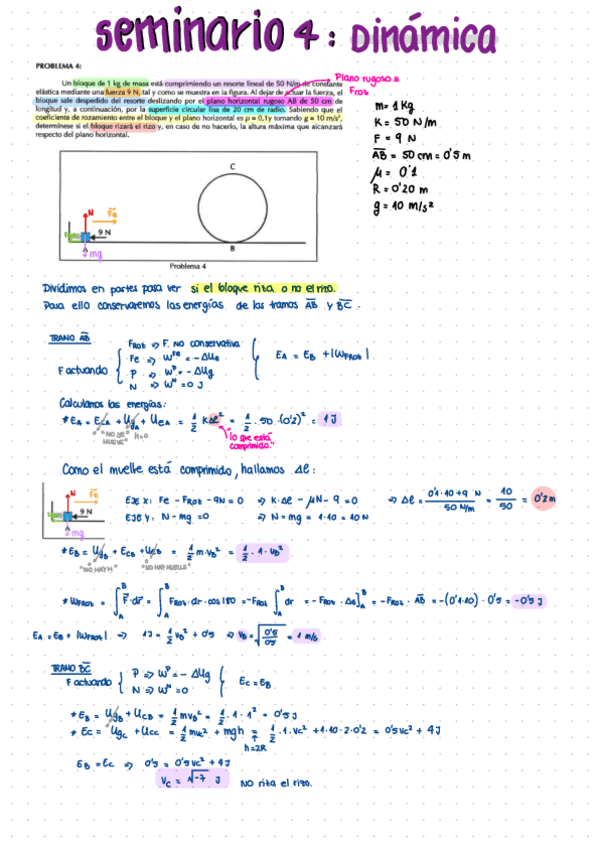 seminario 4: Dinámica
PROBLEMA 4:
Un bloque de 1 kg de masa está comprimiendo un resorte lineal de 50 N/m de constante
elástica mediante una fuerza 9 N, tal y como se muestra en la figura. Al dejar de actuar la fuerza, el
bloque sale despedido del resorte deslizando por el plano horizontal rugoso AB de 50 cm de
longitud y, a continuación, por la superficie circular lisa de 20 cm de radio. Sabiendo que el
coeficiente de rozamiento entre el bloque y el plano horizontal es μ = 0,1y tomando g = 10 m/s²,
determínese si el bloque rizará el rizo y, en caso de no hacerlo, la altura máxima que alcanzará
respecto del plano horizontal.
Plano rugoso =
FROZ
m = 1 Kg
K = 50 N/m
F = 9 N
AB = 50 cm = 0'5 m
μ = 0'1
R = 0'20 m
g = 10 m/s²
C
N
Fe
9 N
A
mg
B
Problema 4
Dividimos en partes para ver si el bloque riza o no el rizo.
Para ello conservaremos las energías de los tramos AB y BC.
TRAMO AB
F actuando
FROZ => F. No conservativa
Fe => W^Fe = -ΔUe
P => W^P = -ΔUg
N => W^N = 0 J
EA = EB + |WFROZ|
Calculamos las energías:
* EA = ECA + UgA + UeA = 1/2 KΔe² = 1/2 · 50 · (0'2)² = 1 J
"NO SE MUEVE"
h=0
"lo que está comprimido."
Como el muelle está comprimido, hallamos Δe:
N
Fe
9 N
A
mg
EJE X: Fe - FROZ - 9N = 0 => K·Δe - μN - 9 = 0 => Δe = (0'1·10+9 N)/(50 N/m) = 10/50 = 0'2 m
EJE Y: N - mg = 0 => N = mg = 1·10 = 10 N
* EB = UgB + ECB + UeB = 1/2 m·vB² = 1/2 · 1 · vB²
"NO HAY H"
"NO HAY MUELLE"
* WFROZ = ∫_A^B F·dr = ∫_A^B FROZ · dr · cos180 = -FROZ ∫_A^B dr = -FROZ · Δs]_A^B = -FROZ · AB = -(0'1·10) · 0'5 = -0'5 J
EA = EB + |WFROZ| => 1J = 1/2 vB² + 0'5 => vB = √(0'5/0'5) = 1 m/s
TRAMO BC
F actuando
P => W^P = -ΔUg
N => W^N = 0
EC = EB
* EB = UgB + UCB = 1/2 mvB² = 1/2 · 1 · 1² = 0'5 J
* EC = UgC + UCC = 1/2 mvC² + mgh = 1/2 · 1 · vC² + 1·10·2·0'2 = 0'5vC² + 4J
h=2R
EB = EC => 0'5 = 0'5vC² + 4J
VC = √-7 J NO riza el rizo.